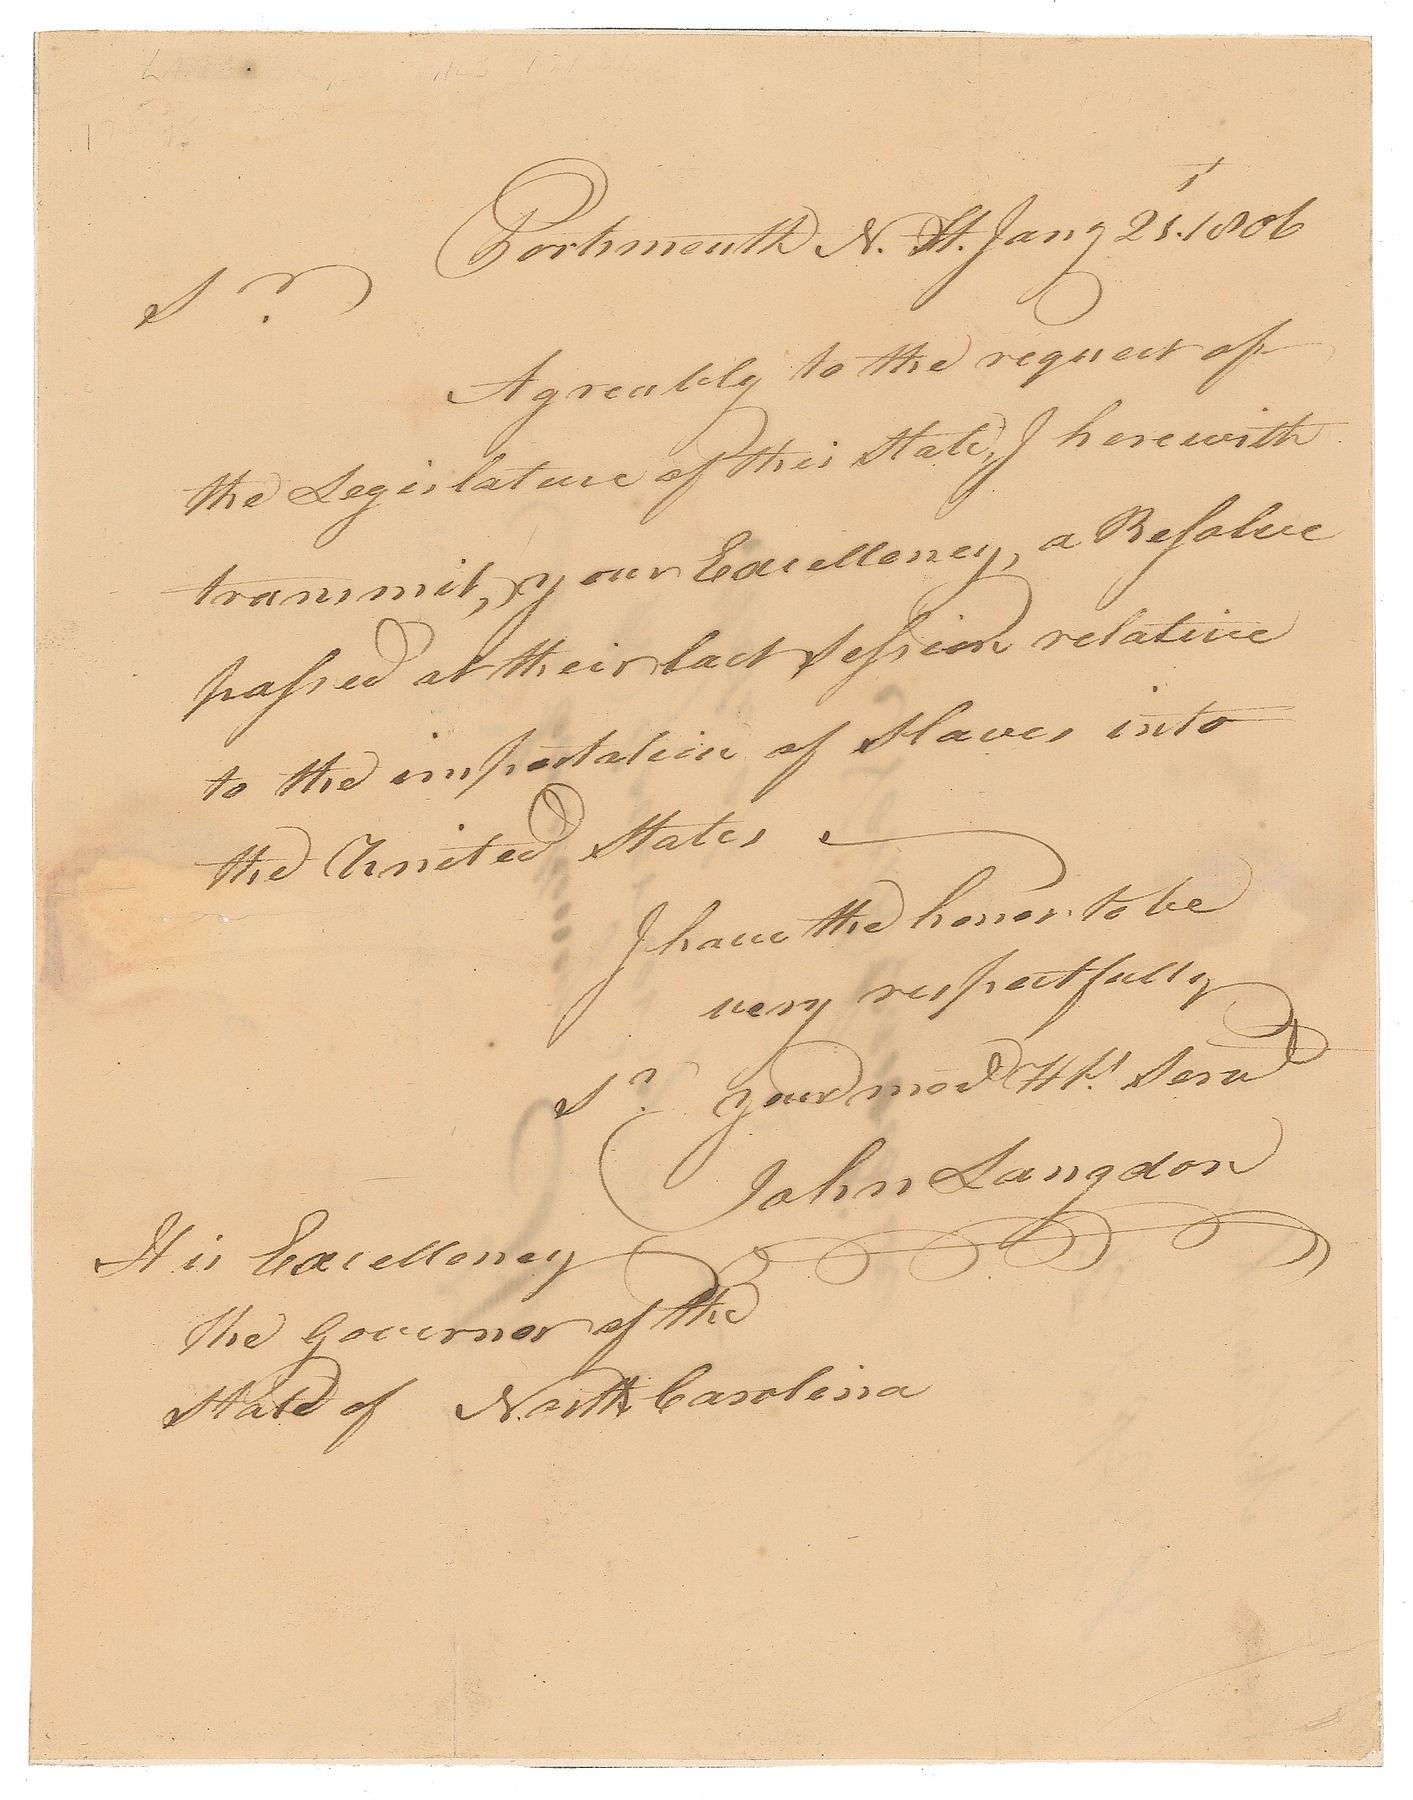 Portsmouth N. H. Jany 21st. 1806
Sr.
Agreably to the request of
the Legislature of this State, I herewith
transmit, your Excellency, a Resolve
passed at their last Session relative
to the importation of Slaves into
the United States
I have the honor to be
very respectfully
Sr. your most Hl. Servt
John Langdon
His Excellency
the Governor of the
State of North Carolina